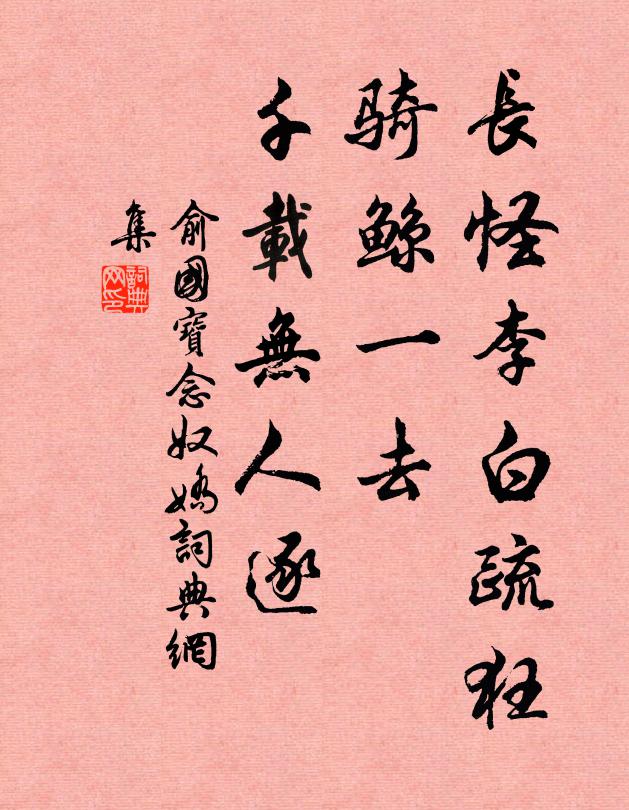 長怪李白疏狂
騎鯨一去
千載無人逐
俞國寶念奴嬌詞典網
集
詞典
网印